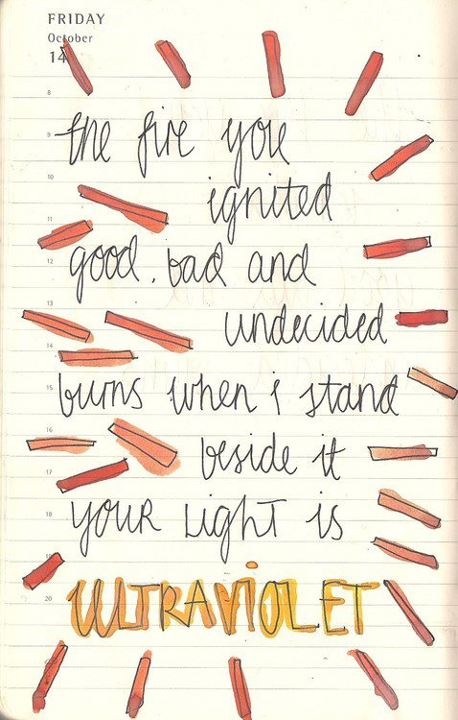 FRIDAY
October
14
8
the fire you
9
10
ignited
11
good. bad and
12
13
undecided
14
burns when i stand
15
16
beside it
17
your light is
18
19
ULTRAVIOLET
20